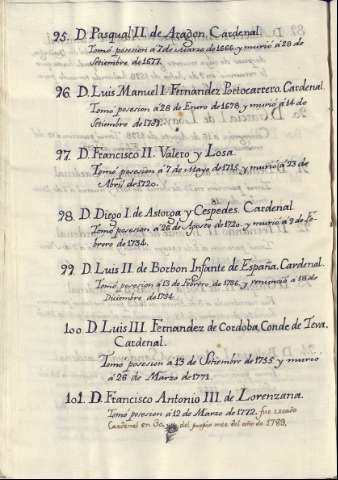 95. D. Pasqual II. de Aragon. Cardenal.
Tomó posesion á 7 de Marzo de 1666. y murió á 28 de
Setiembre de 1677.
96. D. Luis Manuel I. Fernandez Portocarrero. Cardenal.
Tomó posesion á 28 de Enero de 1678. y murió á 14 de
Setiembre de 1709.
97. D. Francisco II. Valero y Losa.
Tomó posesion á 7 de Mayo de 1715. y murió á 23 de
Abril de 1720.
98. D. Diego I. de Astorga y Cespedes. Cardenal
Tomó posesion á 26 de Agosto de 1720. y murió á 9 de Fe-
brero de 1734.
99. D. Luis II. de Borbon Infante de España. Cardenal.
Tomó posesion á 13 de Febrero de 1736. y renunció á 18 de
Diciembre de 1754.
100. D. Luis III. Fernandez de Cordoba, Conde de Teva.
Cardenal.
Tomó posesion á 13 de Setiembre de 1755. y murió
á 26 de Marzo de 1771.
101. D. Francisco Antonio III. de Lorenzana.
Tomó posesion á 12 de Marzo de 1772. fue creado
Cardenal en 30 del propio mes del año de 1789.